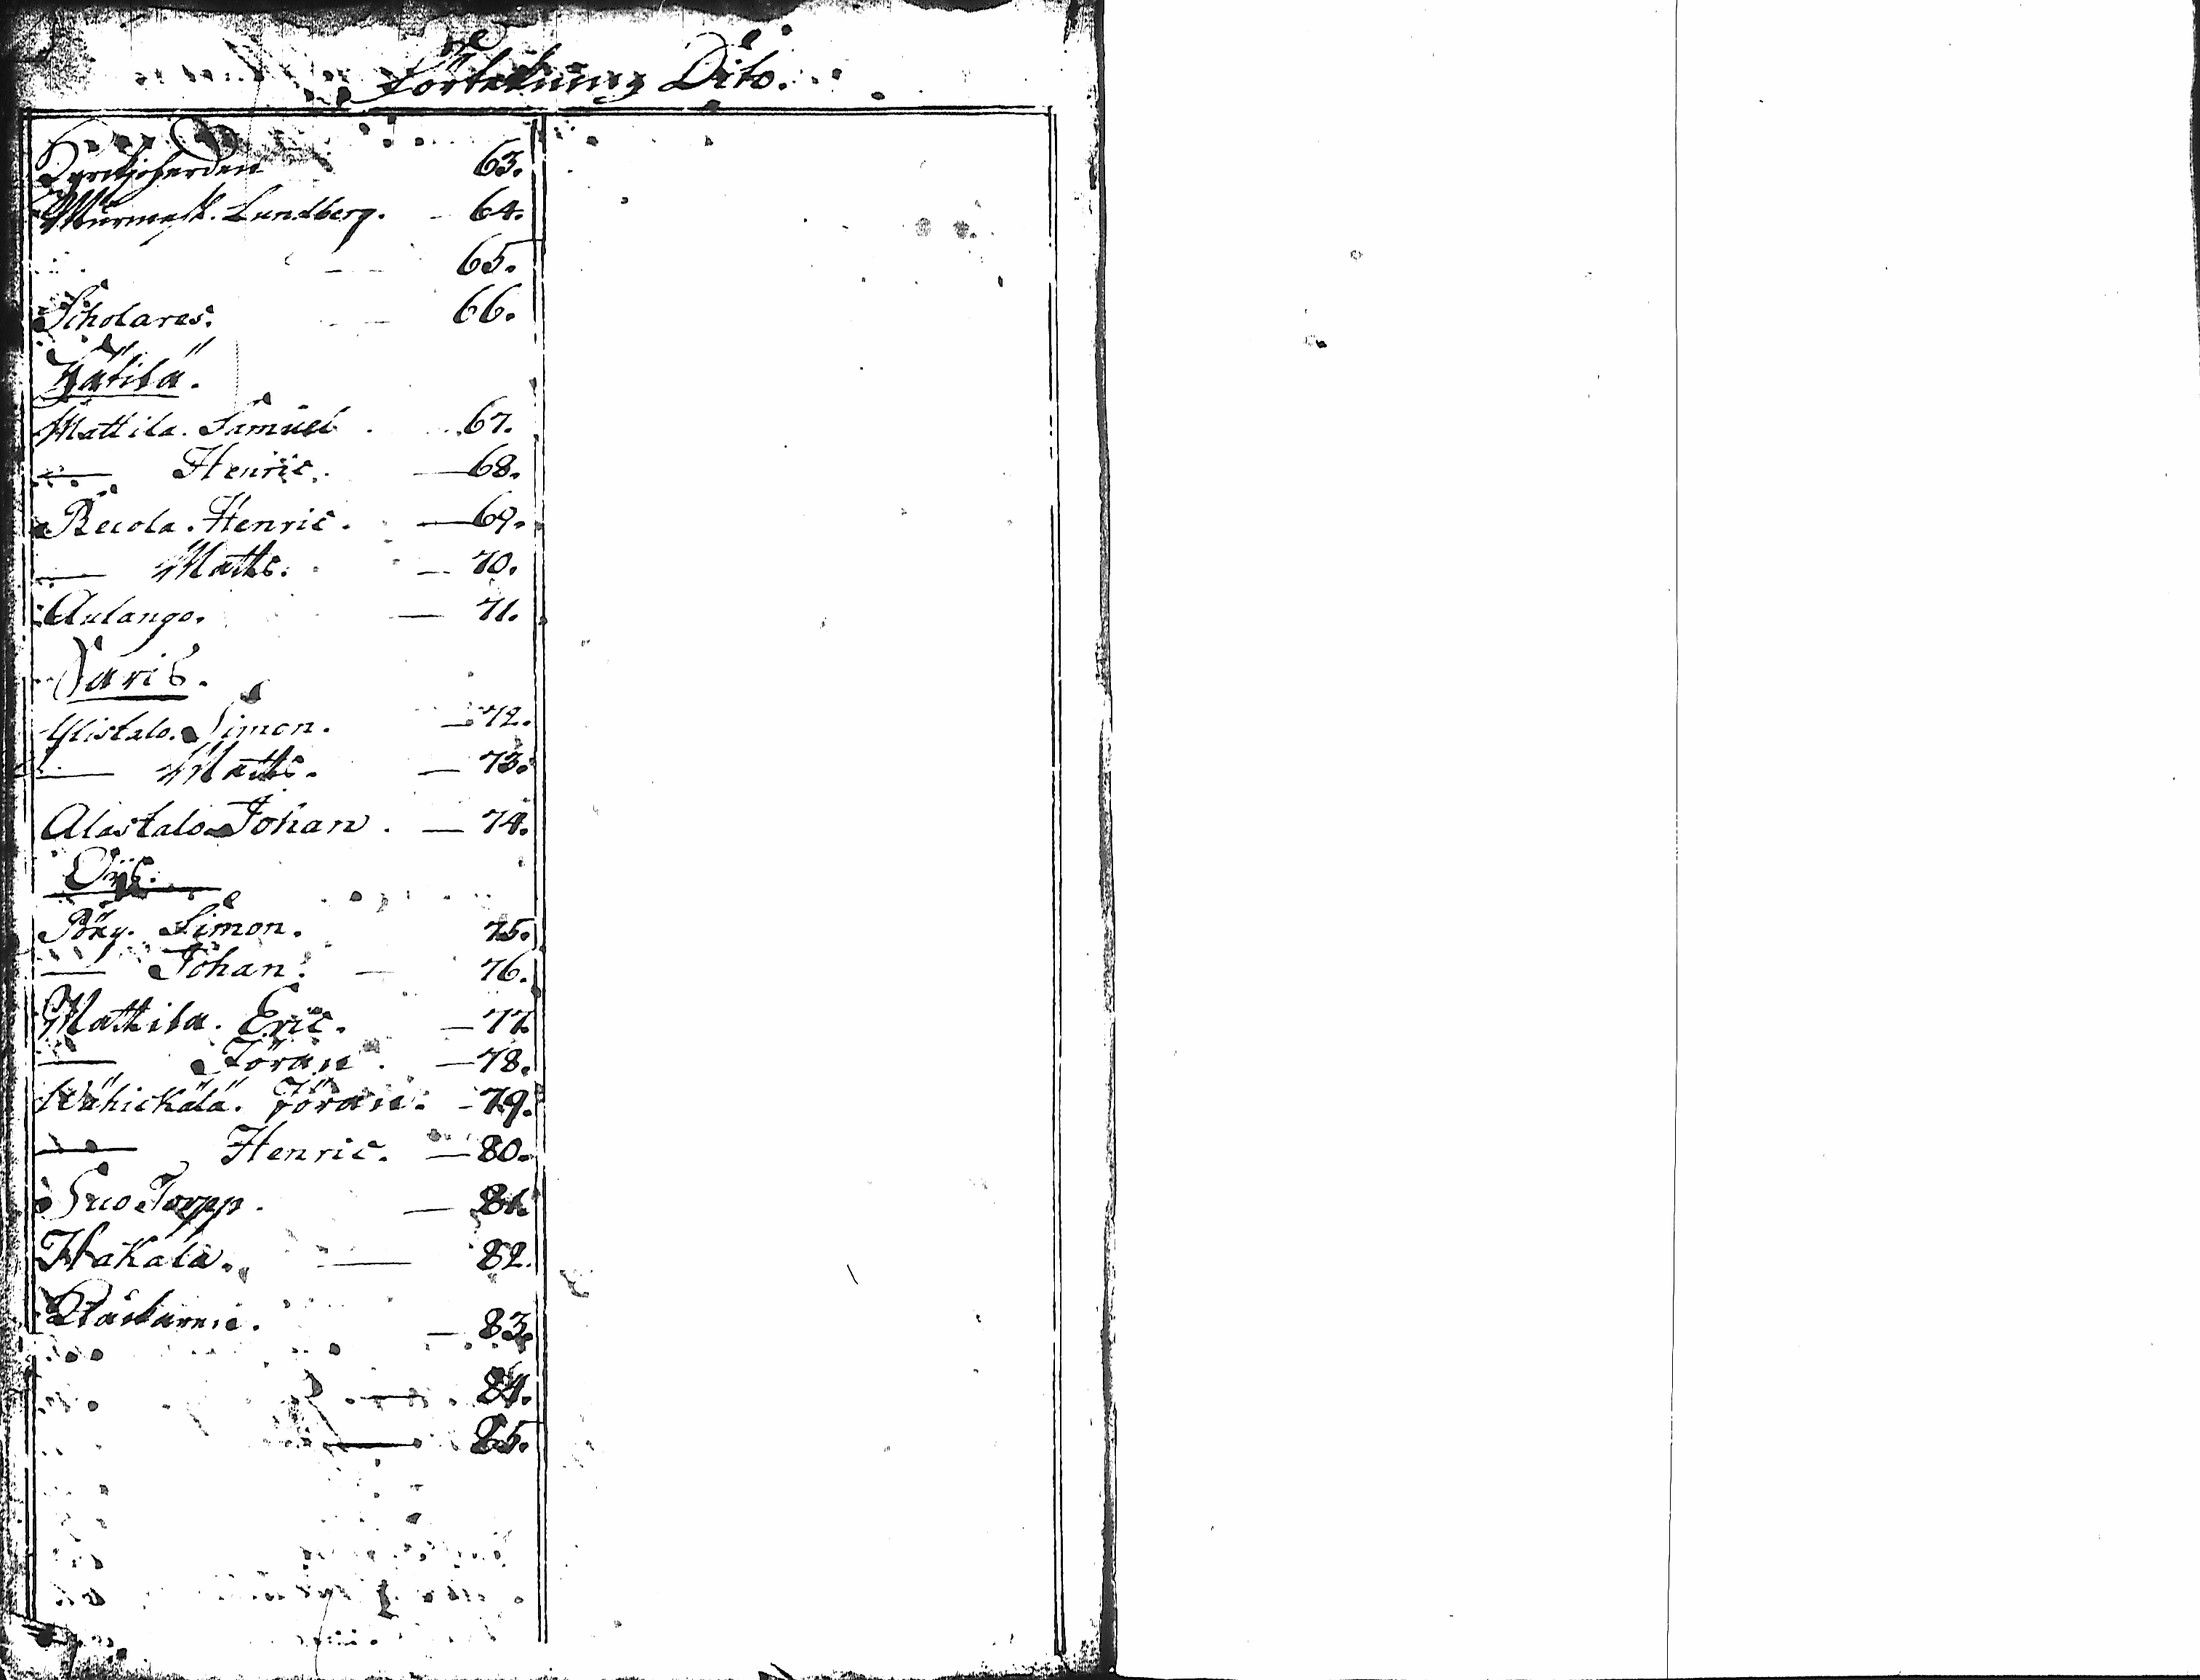 Förtekning Dito.
Kyrckjoherden 63.
Murmest. Lundberg. — 64.
— 65.
Scholares. — 66.
Kätilä.
Mattila. Samuel. 67.
— Henric. — 68.
Recola. Henric. — 69.
— Matts. — 70.
Aulango. — 71.
Saris.
Ylistalo. Simon. — 72.
— Matts. — 73.
Alastalo Johan. — 74.
Pöxy. Simon. 75.
— Johan. — 76.
Mattila. Eric. — 77.
— Jöran. — 78.
Wähickälä. Jöran. — 79.
— Henric. — 80.
Suo Torpp. — 81.
Hakala. — 82.
— 83.
— 84.
— 85.